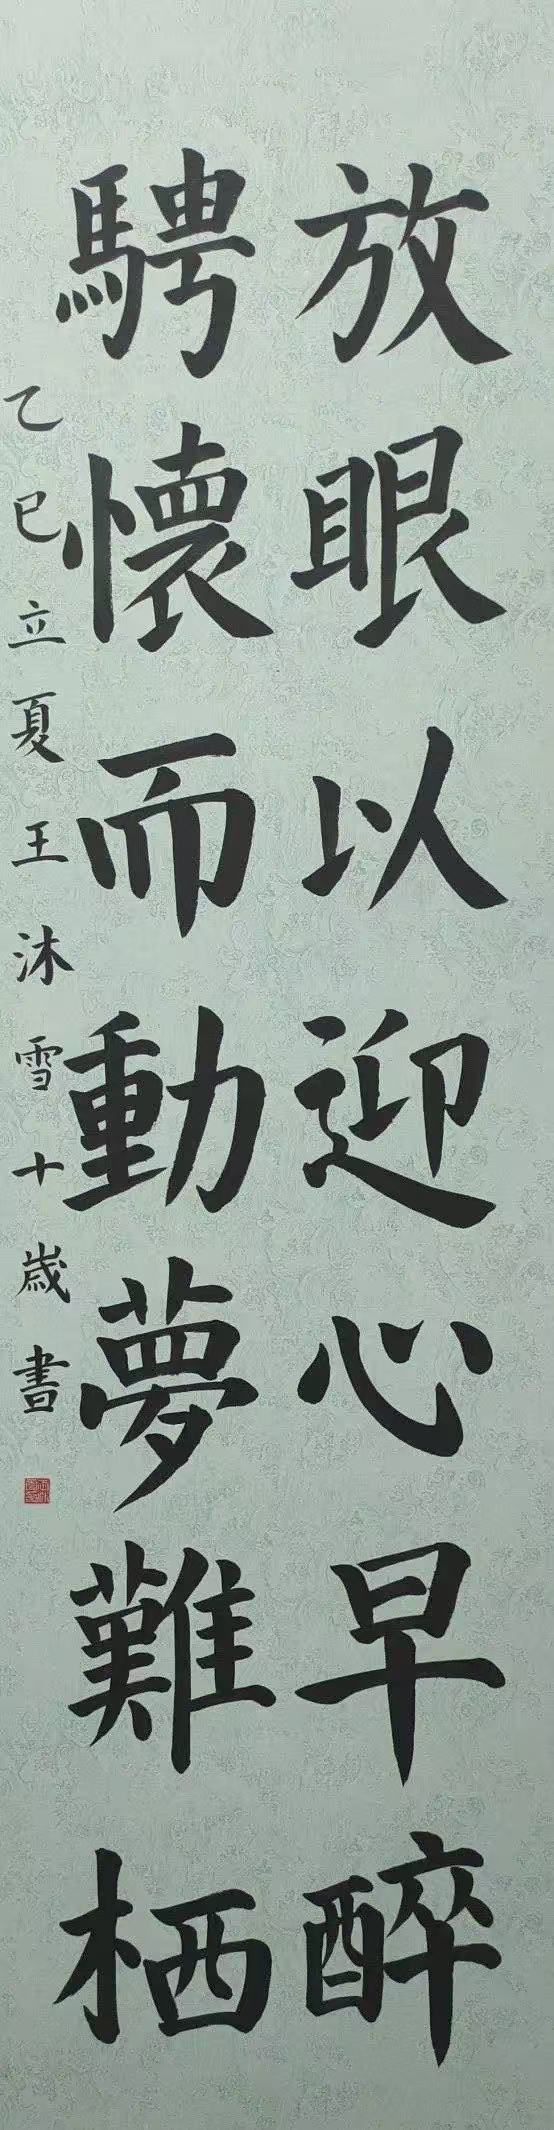 放眼以迎心早醉
騁懷而動夢難栖
乙巳立夏王沐雪十歲書